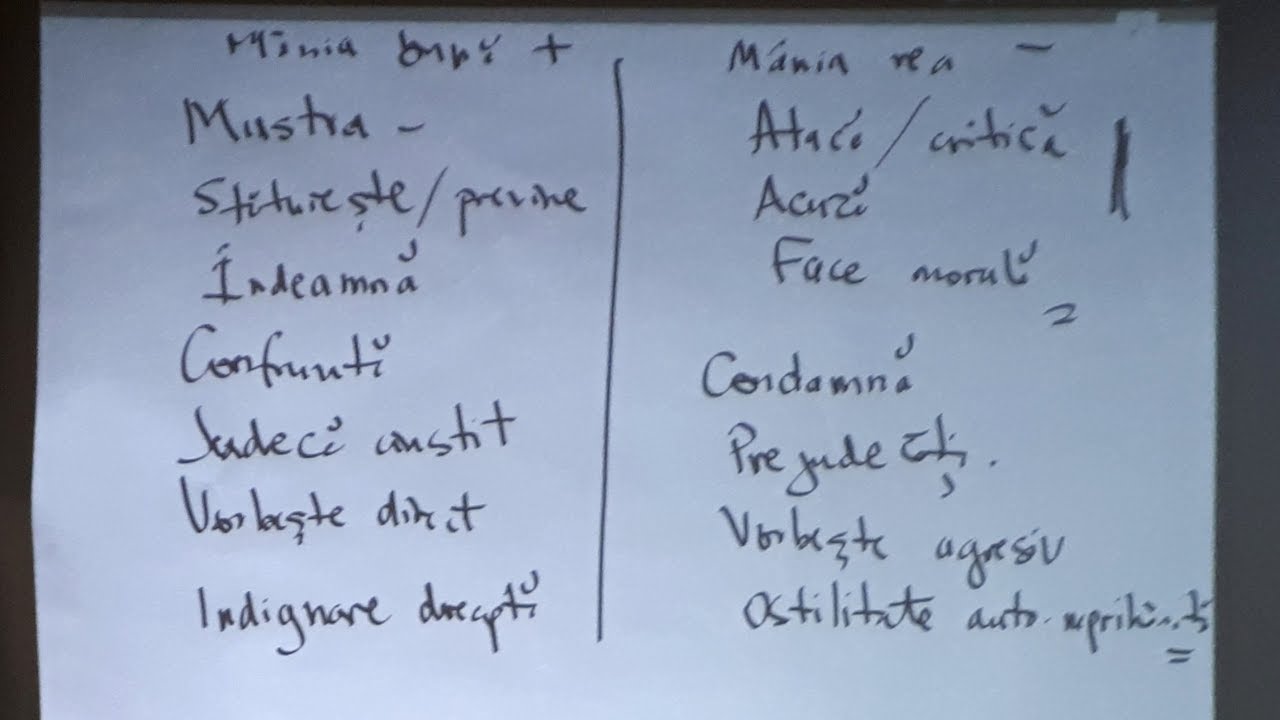 Mînia bună +
Mustra -
Sfătuiește / previne
Îndeamnă
Confruntă
Judecă constit
Vorbește direct
Indignare dreaptă
Mânia rea -
Atacă / critică
Acuză
Face morală
Condamnă
Prejudecăți.
Vorbește agresiv
Ostilitate auto-neprihănită